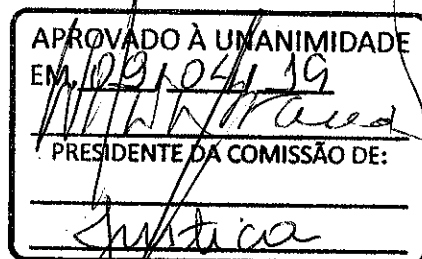 APROVADO À UNANIMIDADE
EM, 09/04/19
PRESIDENTE DA COMISSÃO DE:
Justiça